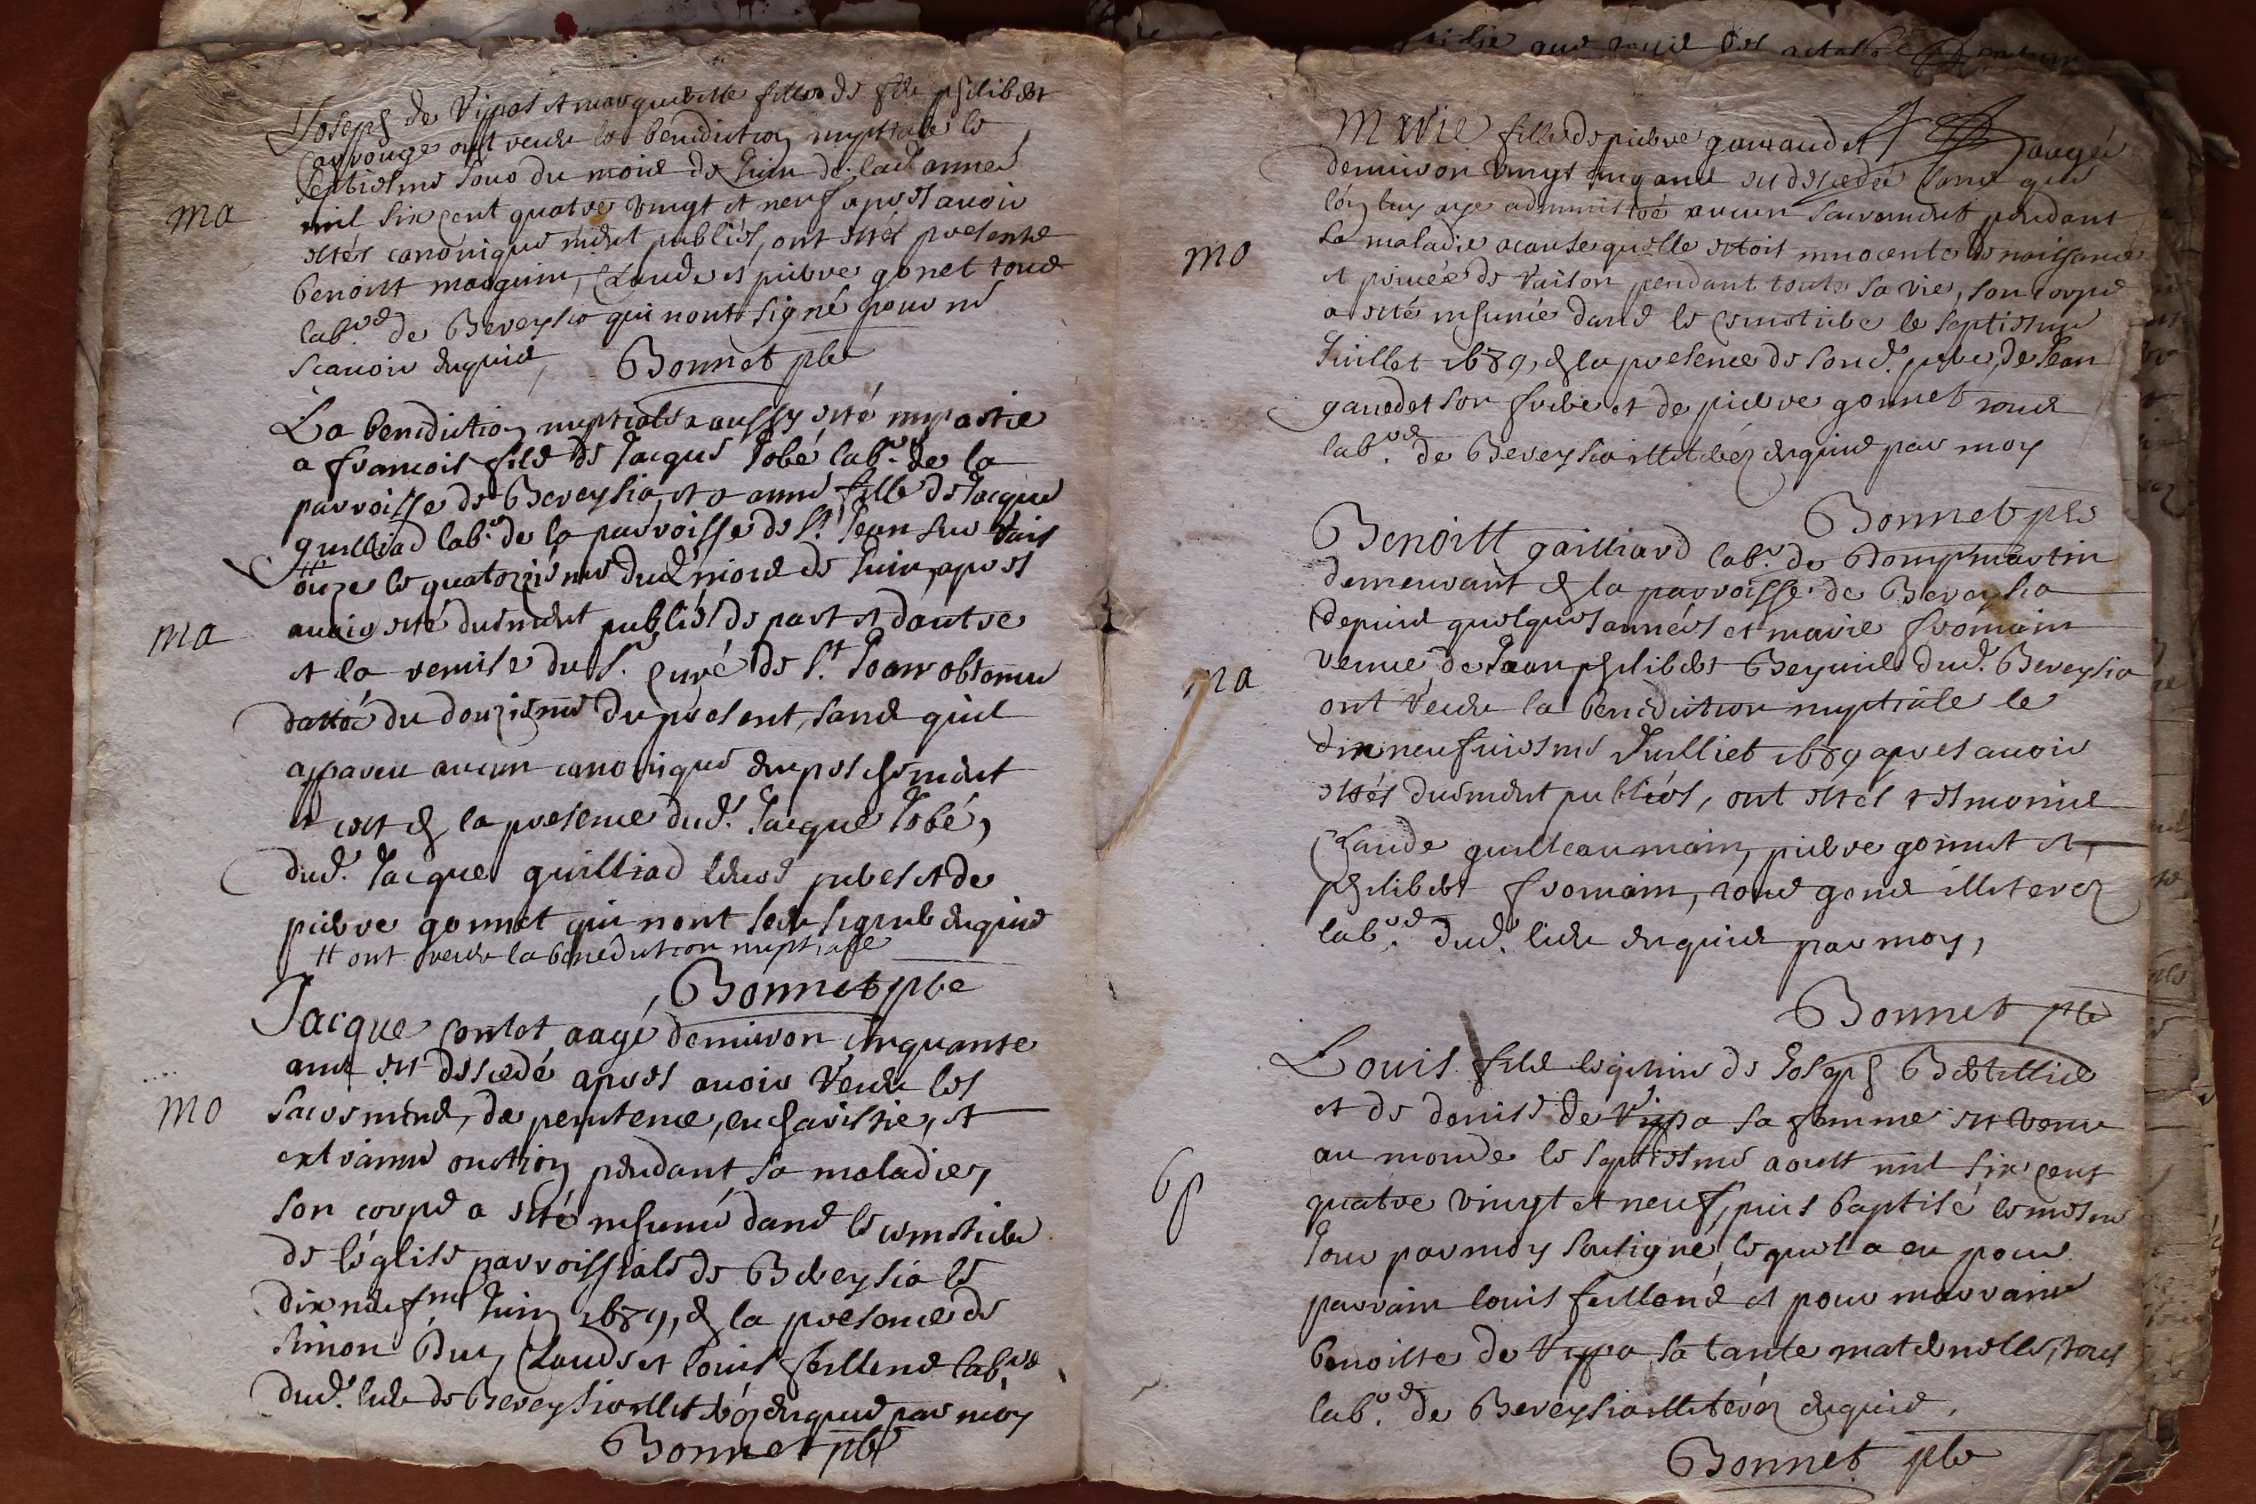 Joseph de Vippas et margueritte fille de feu philibert
Carrouge ont receu la benediction nuptiale le
septiesme jour du mois de Juin de lad. année
mil six cent quatre vingt et neuf apres avoir
estés canoniquement publiés, ont estés presents
benoist maoguin, Claude et pierre gonet tous
lab.rs de Bereysia qui nont signé pour ne
scavoir enquis, Bonnet pbr
ma
La benediction nuptiale a aussy esté impartie
a francois fils de Jacque Jobé lab.r de la
parroisse de Bereysia, et a anne fille de Jacque
guilliad lab.r de la parroisse de St. Jean sur Rais
ouze le quatorziesme dud. mois de Juin, apres
avoir esté duement publiés de part et dautre
et la remise du Sr. Curé de St. Jean obtenue
dattée du douziesme du present, sans quil
appareu aucun canonique empeschement
et cest en la presence dud. Jacque Jobé,
dud. Jacque guilliad leurs peres et de
pierre gonnet qui nont sceu signer enquis
# ont receu la benediction nuptiale
Bonnet pbr
ma
Jacque contet aagé denviron cinquante
ans est decedé apres avoir receu les
sacrements, de penitence, eucharistie, et
extrainne onction pendant sa maladie,
son corps a esté inhumé dans le cimetiere
de leglise parroissiale de Bereysia le
dix neufme Juin 1689, en la presence de
Simon Duc, Claude et louis feillens lab.rs
dud. lieu de Bereysia illiterez enquis par moy
Bonnet pbr
mo
Marie fille de pierre gauaudet aagée
denviron vingt cinq ans est decedée sans que
lon luy aye administré aucun sacrement pendant
sa maladie a cause quelle estoit innocente de naissance
et privée de raison pendant toute sa vie, son corps
a esté inhumé dans le cimetiere le septiesme
Juillet 1689, en la presence de sond. pere, de Jean
gauodet son frere et de pierre gonnet tous
lab.rs de Bereysia illiterez enquis par moy
Bonnet pbr
mo
Benoist gailliard lab.r de Dompmartin
demeurant en la parroisse de Bereysia
depuis quelques années et marie fromain
veuve de Jean philibert Beynie dud. Bereysia
ont receu la benediction nuptiale le
dix neufviesme Juilliet 1689 apres avoir
estés duement publiés, ont estés tesmoins
Claude guilleaumain, pierre gonnet et
philibert fromain, tous gens illiterez
lab.rs dud. lieu enquis par moy,
Bonnet pbr
ma
Louis fils legitime de Joseph Bertillie
et de denise de Vippa sa femme est venu
au monde le septiesme aoust mil six cent
quatre vingt et neuf, puis baptisé le mesme
Jour par moy soussigné, lequel a eu pour
parrain louis feillens et pour marraine
benoiste de Vippa sa tante maternelle, tous
lab.rs de Bereysia illiterez enquis,
Bonnet pbr
bp